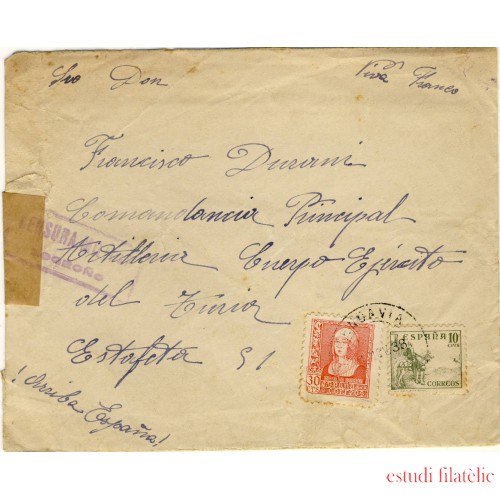 Sro Don
Viva Franco
Francisco Durani
Comandancia Principal
Artilleria Cuerpo Ejército
del Turia
Estafeta 51
¡Arriba España!
CENSURA
LOGROÑO
ESPAÑA 10
CORREOS
30
CTS
estudi filatèlic